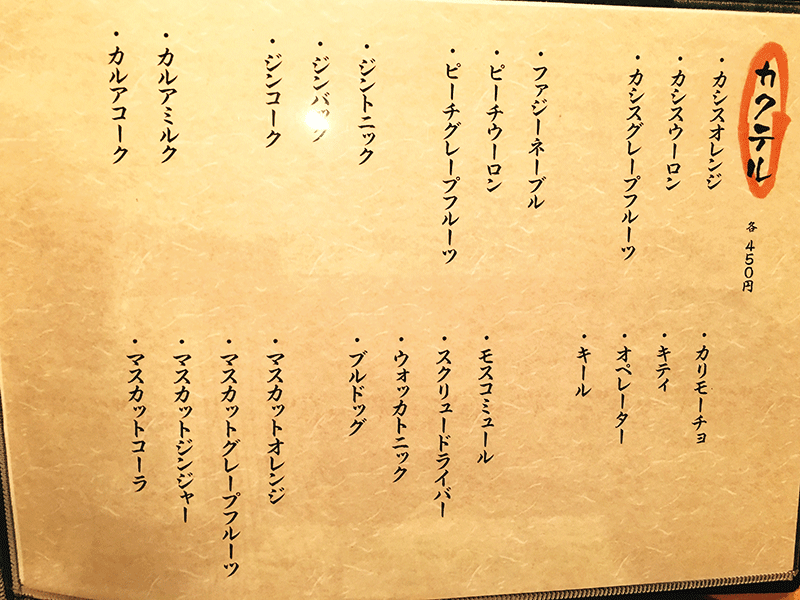 カクテル 各450円
・カシスオレンジ
・カシスウーロン
・カシスグレープフルーツ
・ファジーネーブル
・ピーチウーロン
・ピーチグレープフルーツ
・ジントニック
・ジンバック
・ジンコーク
・カルアミルク
・カルアコーク
・カリモーチョ
・キティ
・オペレーター
・キール
・モスコミュール
・スクリュードライバー
・ウォッカトニック
・ブルドッグ
・マスカットオレンジ
・マスカットグレープフルーツ
・マスカットジンジャー
・マスカットコーラ